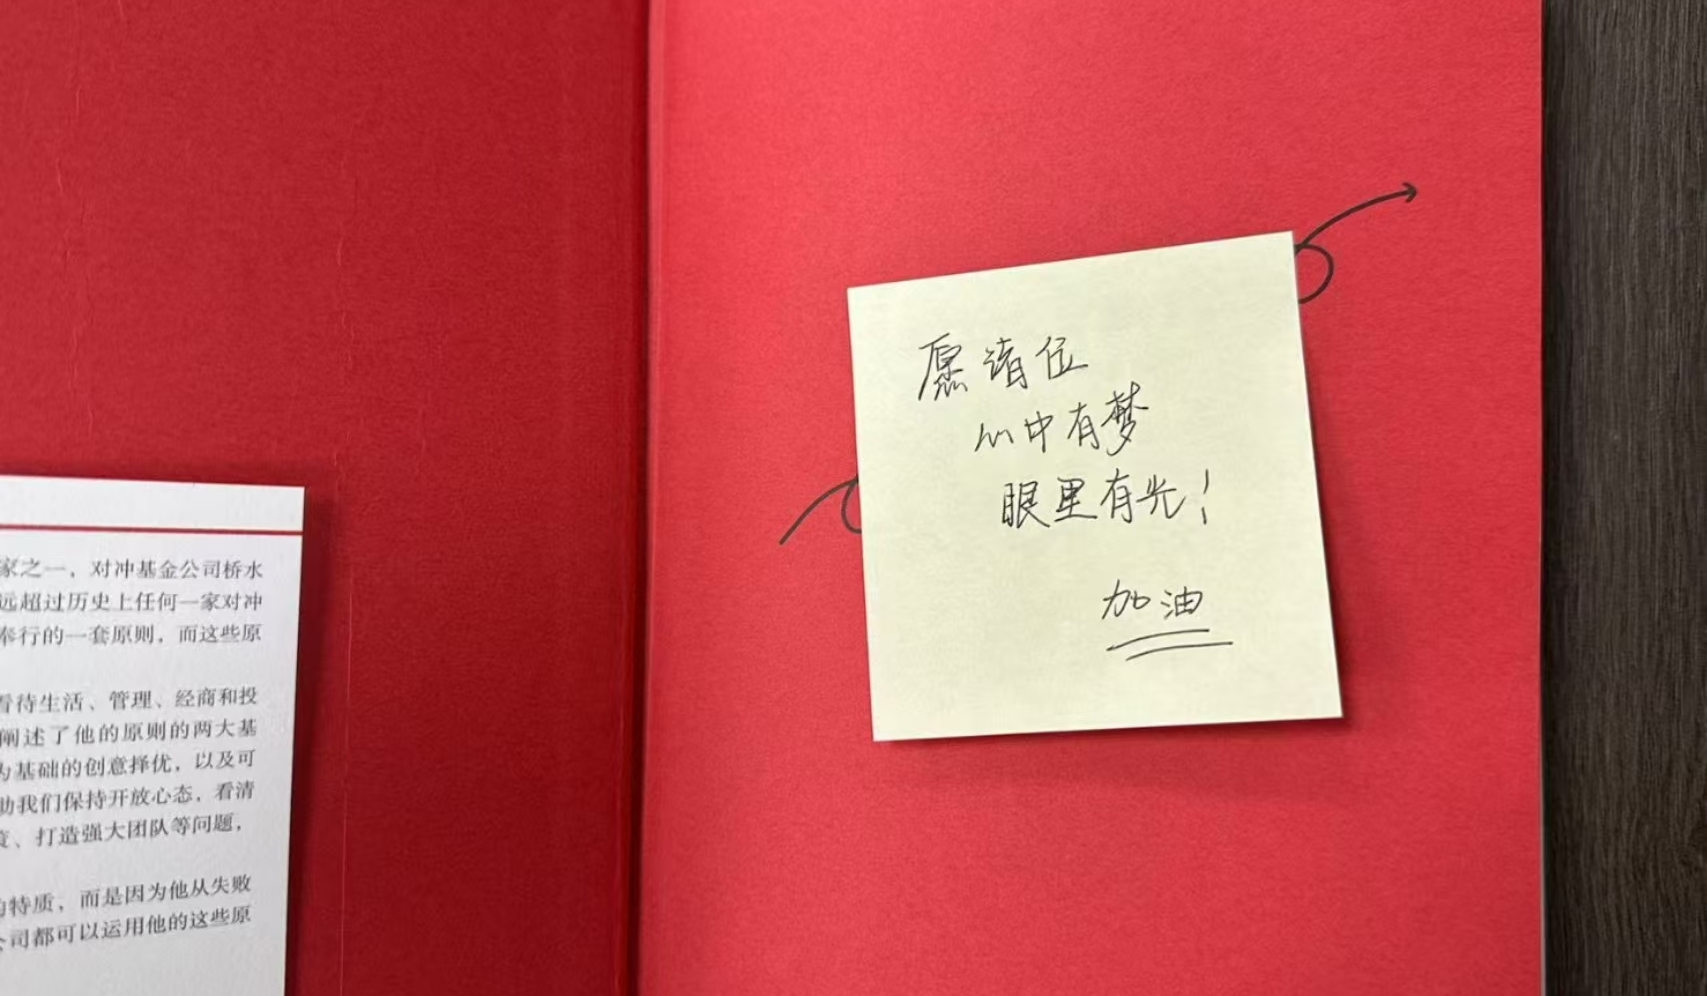 愿诸位
心中有梦
眼里有光!
加油
家之一，对冲基金公司桥水
远超过历史上任何一家对冲
奉行的一套原则，而这些原
看待生活、管理、经商和投
阐述了他的原则的两大基
为基础的创意择优，以及可
助我们保持开放心态，看清
、打造强大团队等问题，
的特质，而是因为他从失败
公司都可以运用他的这些原